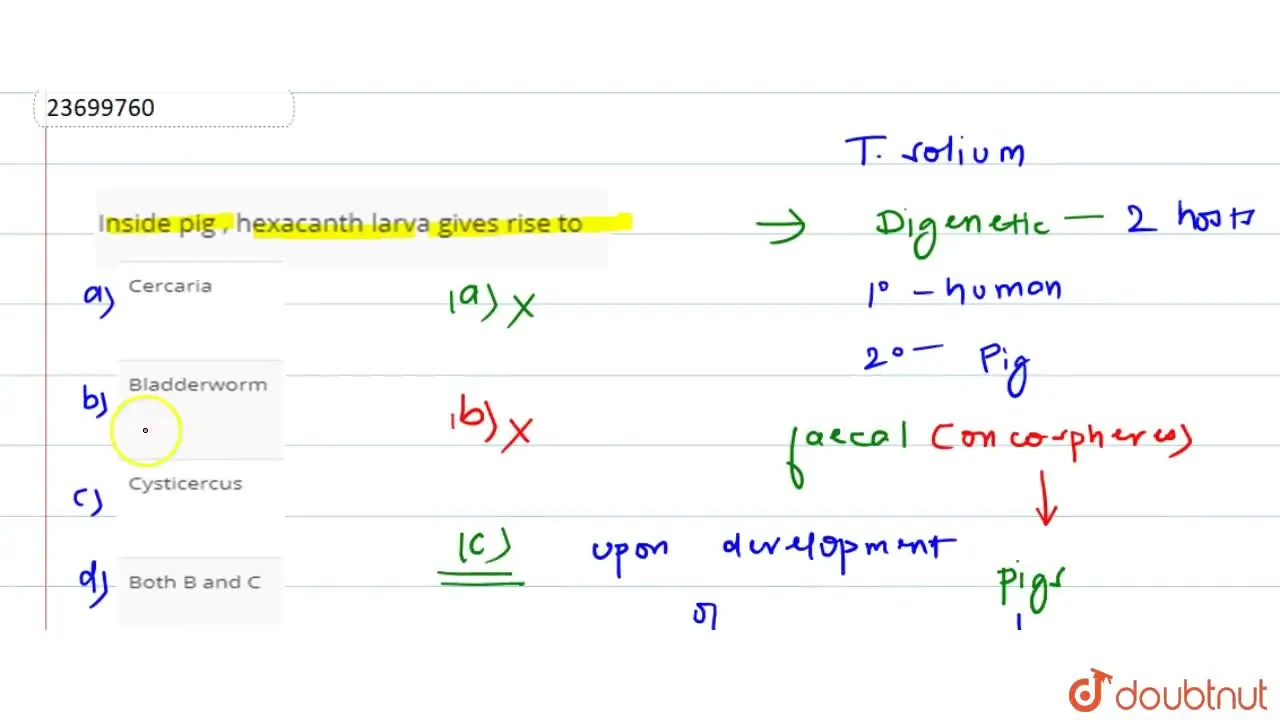 23699760
T. solium
Inside pig , hexacanth larva gives rise to
→ Digenetic — 2 hosts
a) Cercaria
(a) x
1° - human
2° — Pig
b) Bladderworm
(b) x
faecal (oncospheres)
c) Cysticercus
(c) upon development
d) Both B and C
pigs
of
doubtnut